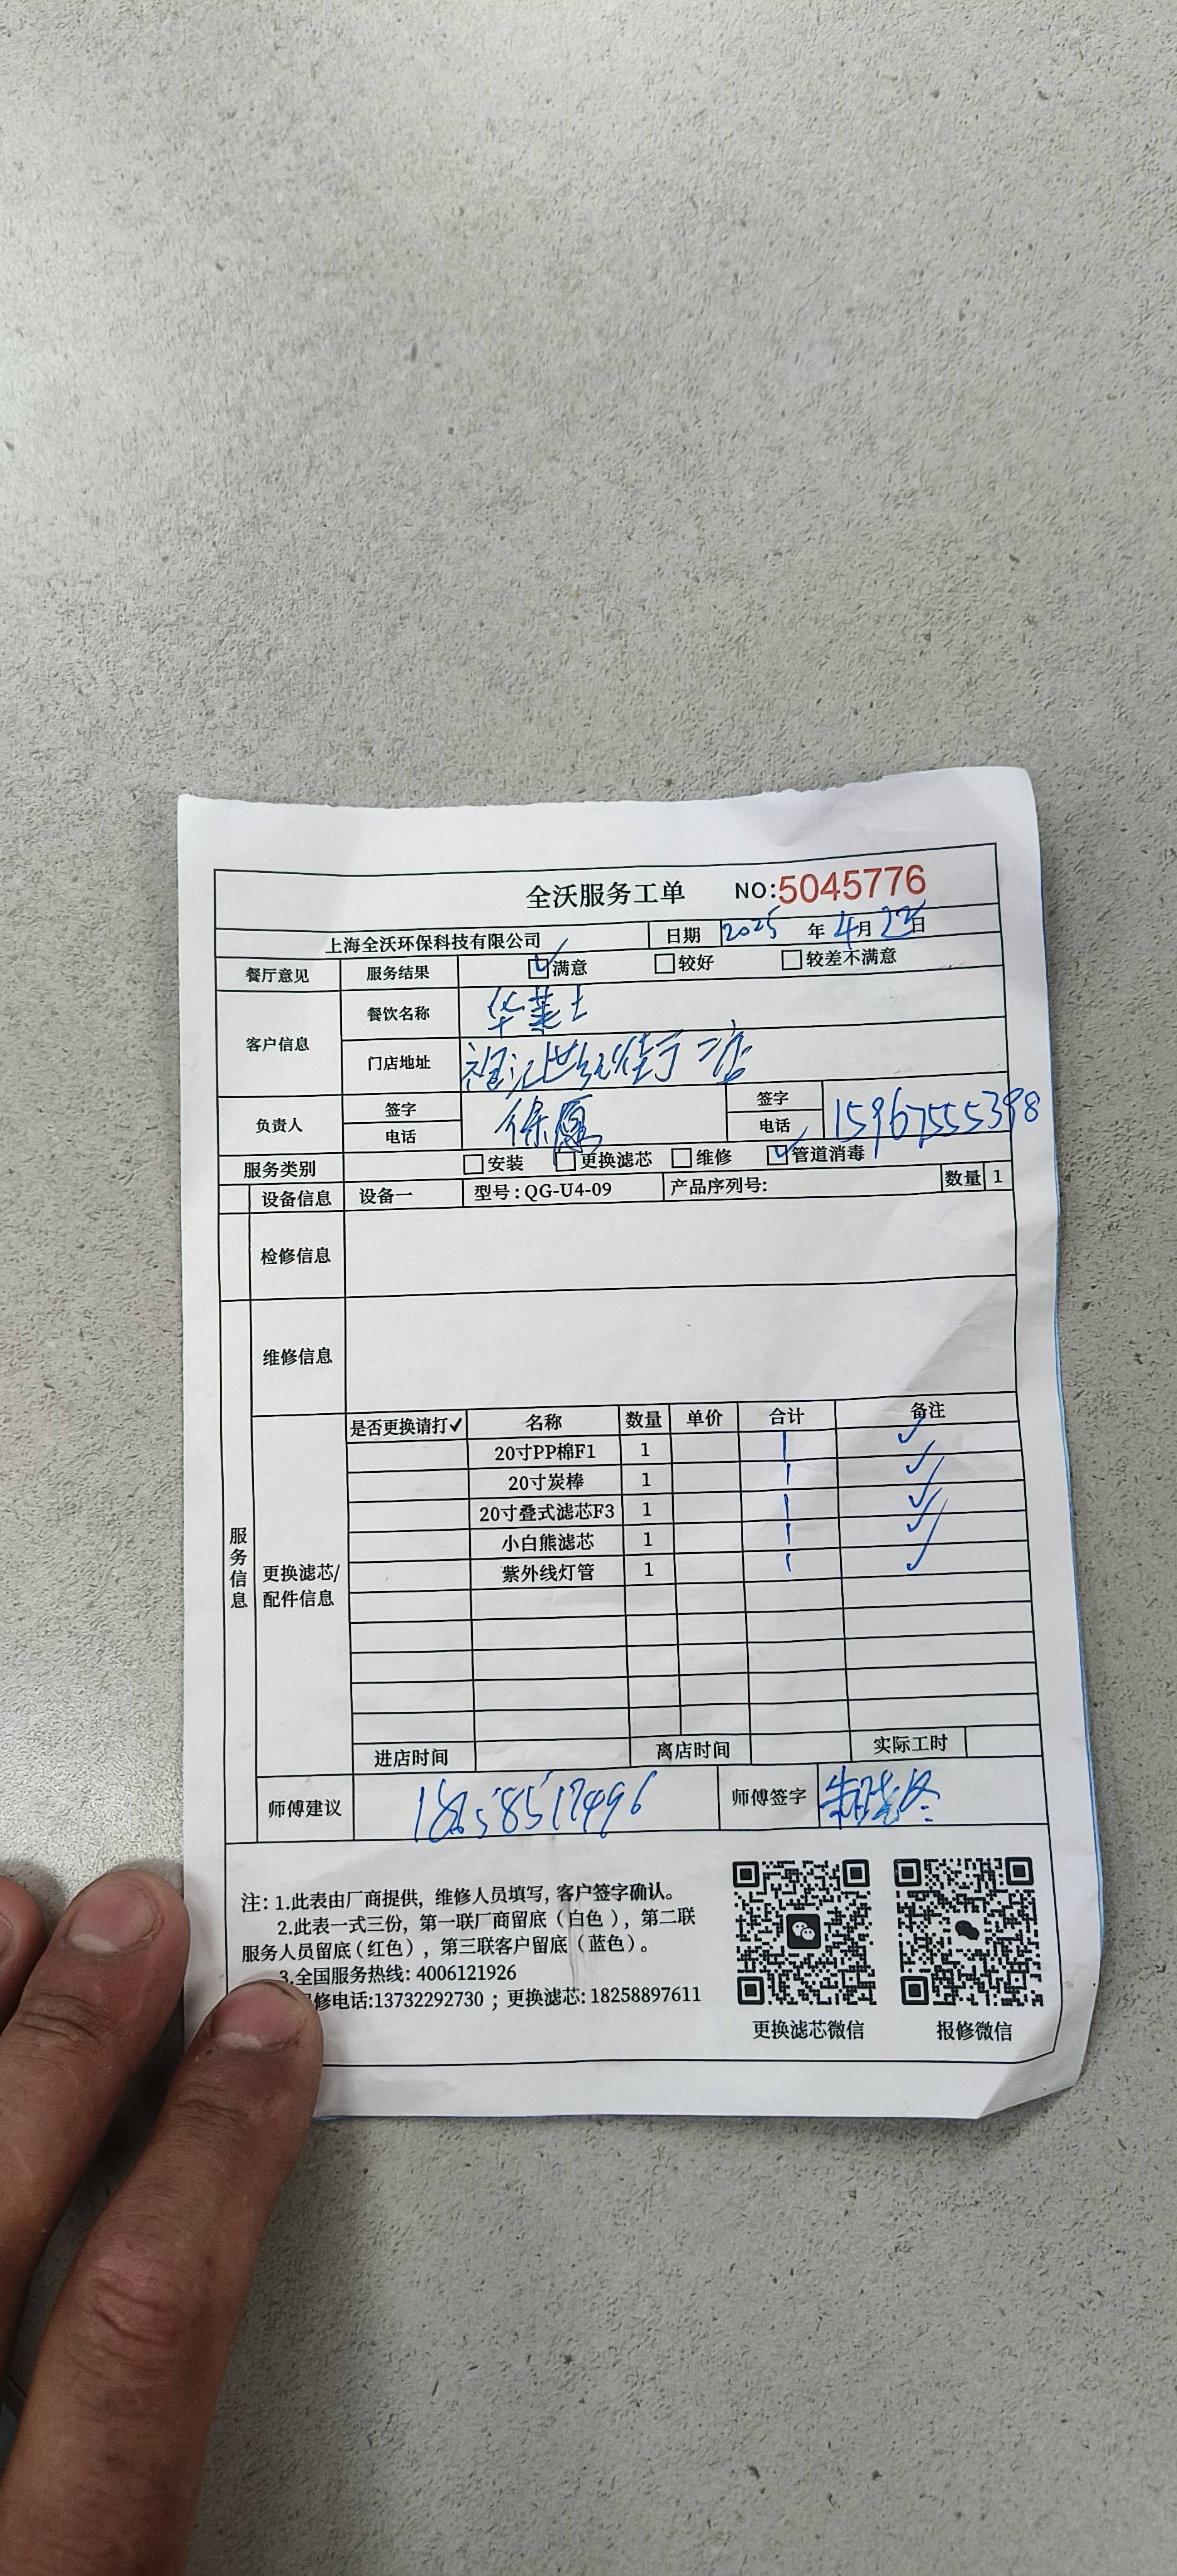 全沃服务工单 NO:5045776
上海全沃环保科技有限公司 日期 2025 年 4月 22日
餐厅意见 服务结果 ☑满意 □较好 □较差不满意
客户信息 餐饮名称 华莱士
门店地址 世纪佳字二店
负责人 签字 电话 徐 签字 电话 15967555398
服务类别 □安装 □更换滤芯 □维修 ☑管道消毒
设备信息 设备一 型号:QG-U4-09 产品序列号: 数量 1
检修信息
维修信息
服务信息
更换滤芯/配件信息
是否更换请打✓ 名称 数量 单价 合计 备注
20寸PP棉F1 1 1 ✓
20寸炭棒 1 1 ✓
20寸叠式滤芯F3 1 1 ✓
小白熊滤芯 1 1 ✓
紫外线灯管 1 1 ✓
进店时间 离店时间 实际工时
师傅建议 18658517496 师傅签字 朱晓冬
注: 1.此表由厂商提供, 维修人员填写, 客户签字确认。
2.此表一式三份, 第一联厂商留底(白色), 第二联
服务人员留底(红色), 第三联客户留底(蓝色)。
3.全国服务热线: 4006121926
修电话:13732292730 ; 更换滤芯: 18258897611
更换滤芯微信 报修微信